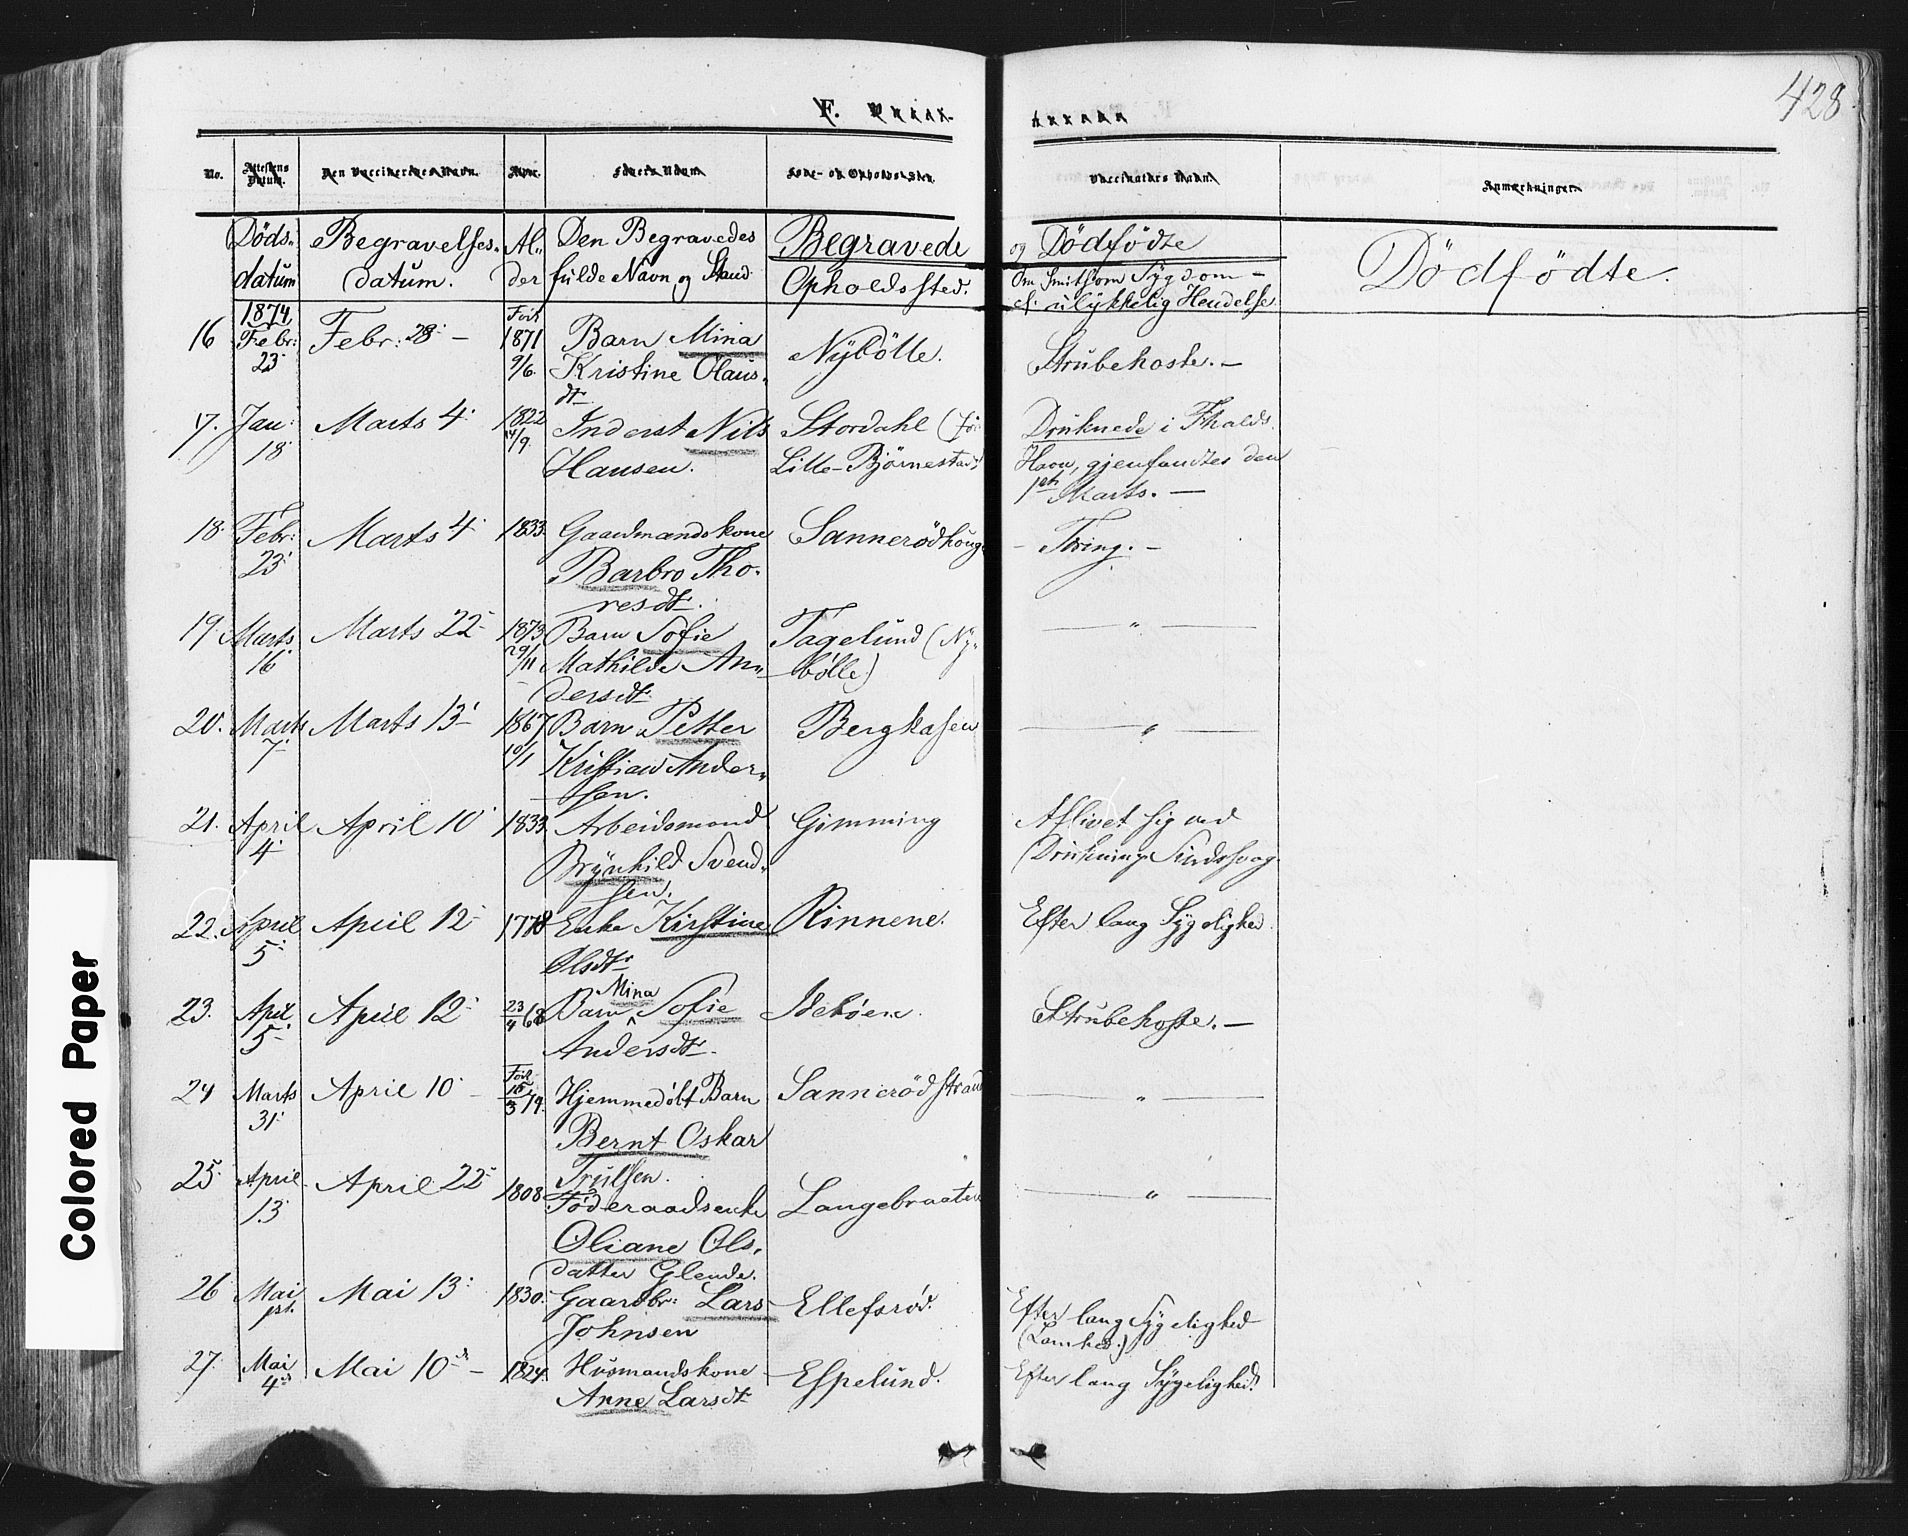 428
No. Attestens Datum. Den Vaccineredes Navn. Alder. Faders Navn Føde- og Opholds-Sted. Vaccinators Navn. Anmærkninger.
Døds- Begravelses- Al- Den Begravedes Begravede og Dödfödte
datum datum. der fulde Navn og Stand Opholdssted. Om Smitsom Sygdom - Dödfödte.
el. ulykkelig Hendelse
1874 Født
16 Febr: 23 Febr: 28 - 1871 9/6 Barn Mina Nÿbölle. Strubehoste. -
Kristine Olaus-
dtr
17. Jan: 18 Marts 4 1822 14/9 Inderst Nils Stordahl (för Druknede i Fhalds
Hansen. Lille-Björnestad) Havn, gjenfandtes den
1ste Marts. -
18 Febr: 23 Marts 4 1833 Gaardmandskone Sannerödhöug - Tæring. -
Barbro Tho-
resdt.
19 Marts 16 Marts 22 1873 29/11 Barn Sofie Fagelund (Ny- — " —
Mathilde An- bølle)
dersdt.
20. Marts 7 Marts 13 1867 10/1 Barn Petter Bergkasen — " —
Kristian Ander-
sen.
21. April 4 April 10 1833 Arbeidsmand Gimming Aflivet sig ved
Brÿnhild Svend- Drukning. Sindssvag.
sen.
22. April 5 April 12 1778 Enke Kirstine Rinnene. Efter lang Sygelighed.
Olsdtr
Mina
23. April 5 April 12 23/4 68 Barn Sofie Strubehoste. -
Andersdtr.
24 Marts 31 April 10 - Født 15/3 74. Hjemmedøbt Barn Sannerödstrand — " —
Bernt Oskar
Trulsen.
25. April 13 April 22 1808 Føderaadsenke Langebraaten — " —
Oliane Ols-
datter Glende.
26 Mai 1st. Mai 13 1830. Gaardbr: Lars Ellefsrød. Efter lang Sygelighed
Johnsen (Lamhed.)
27. Mai 4de Mai 10de - 1824. Husmandskone Espelund. Efter lang Sygelighed.
Anne Larsdt
Colored Paper